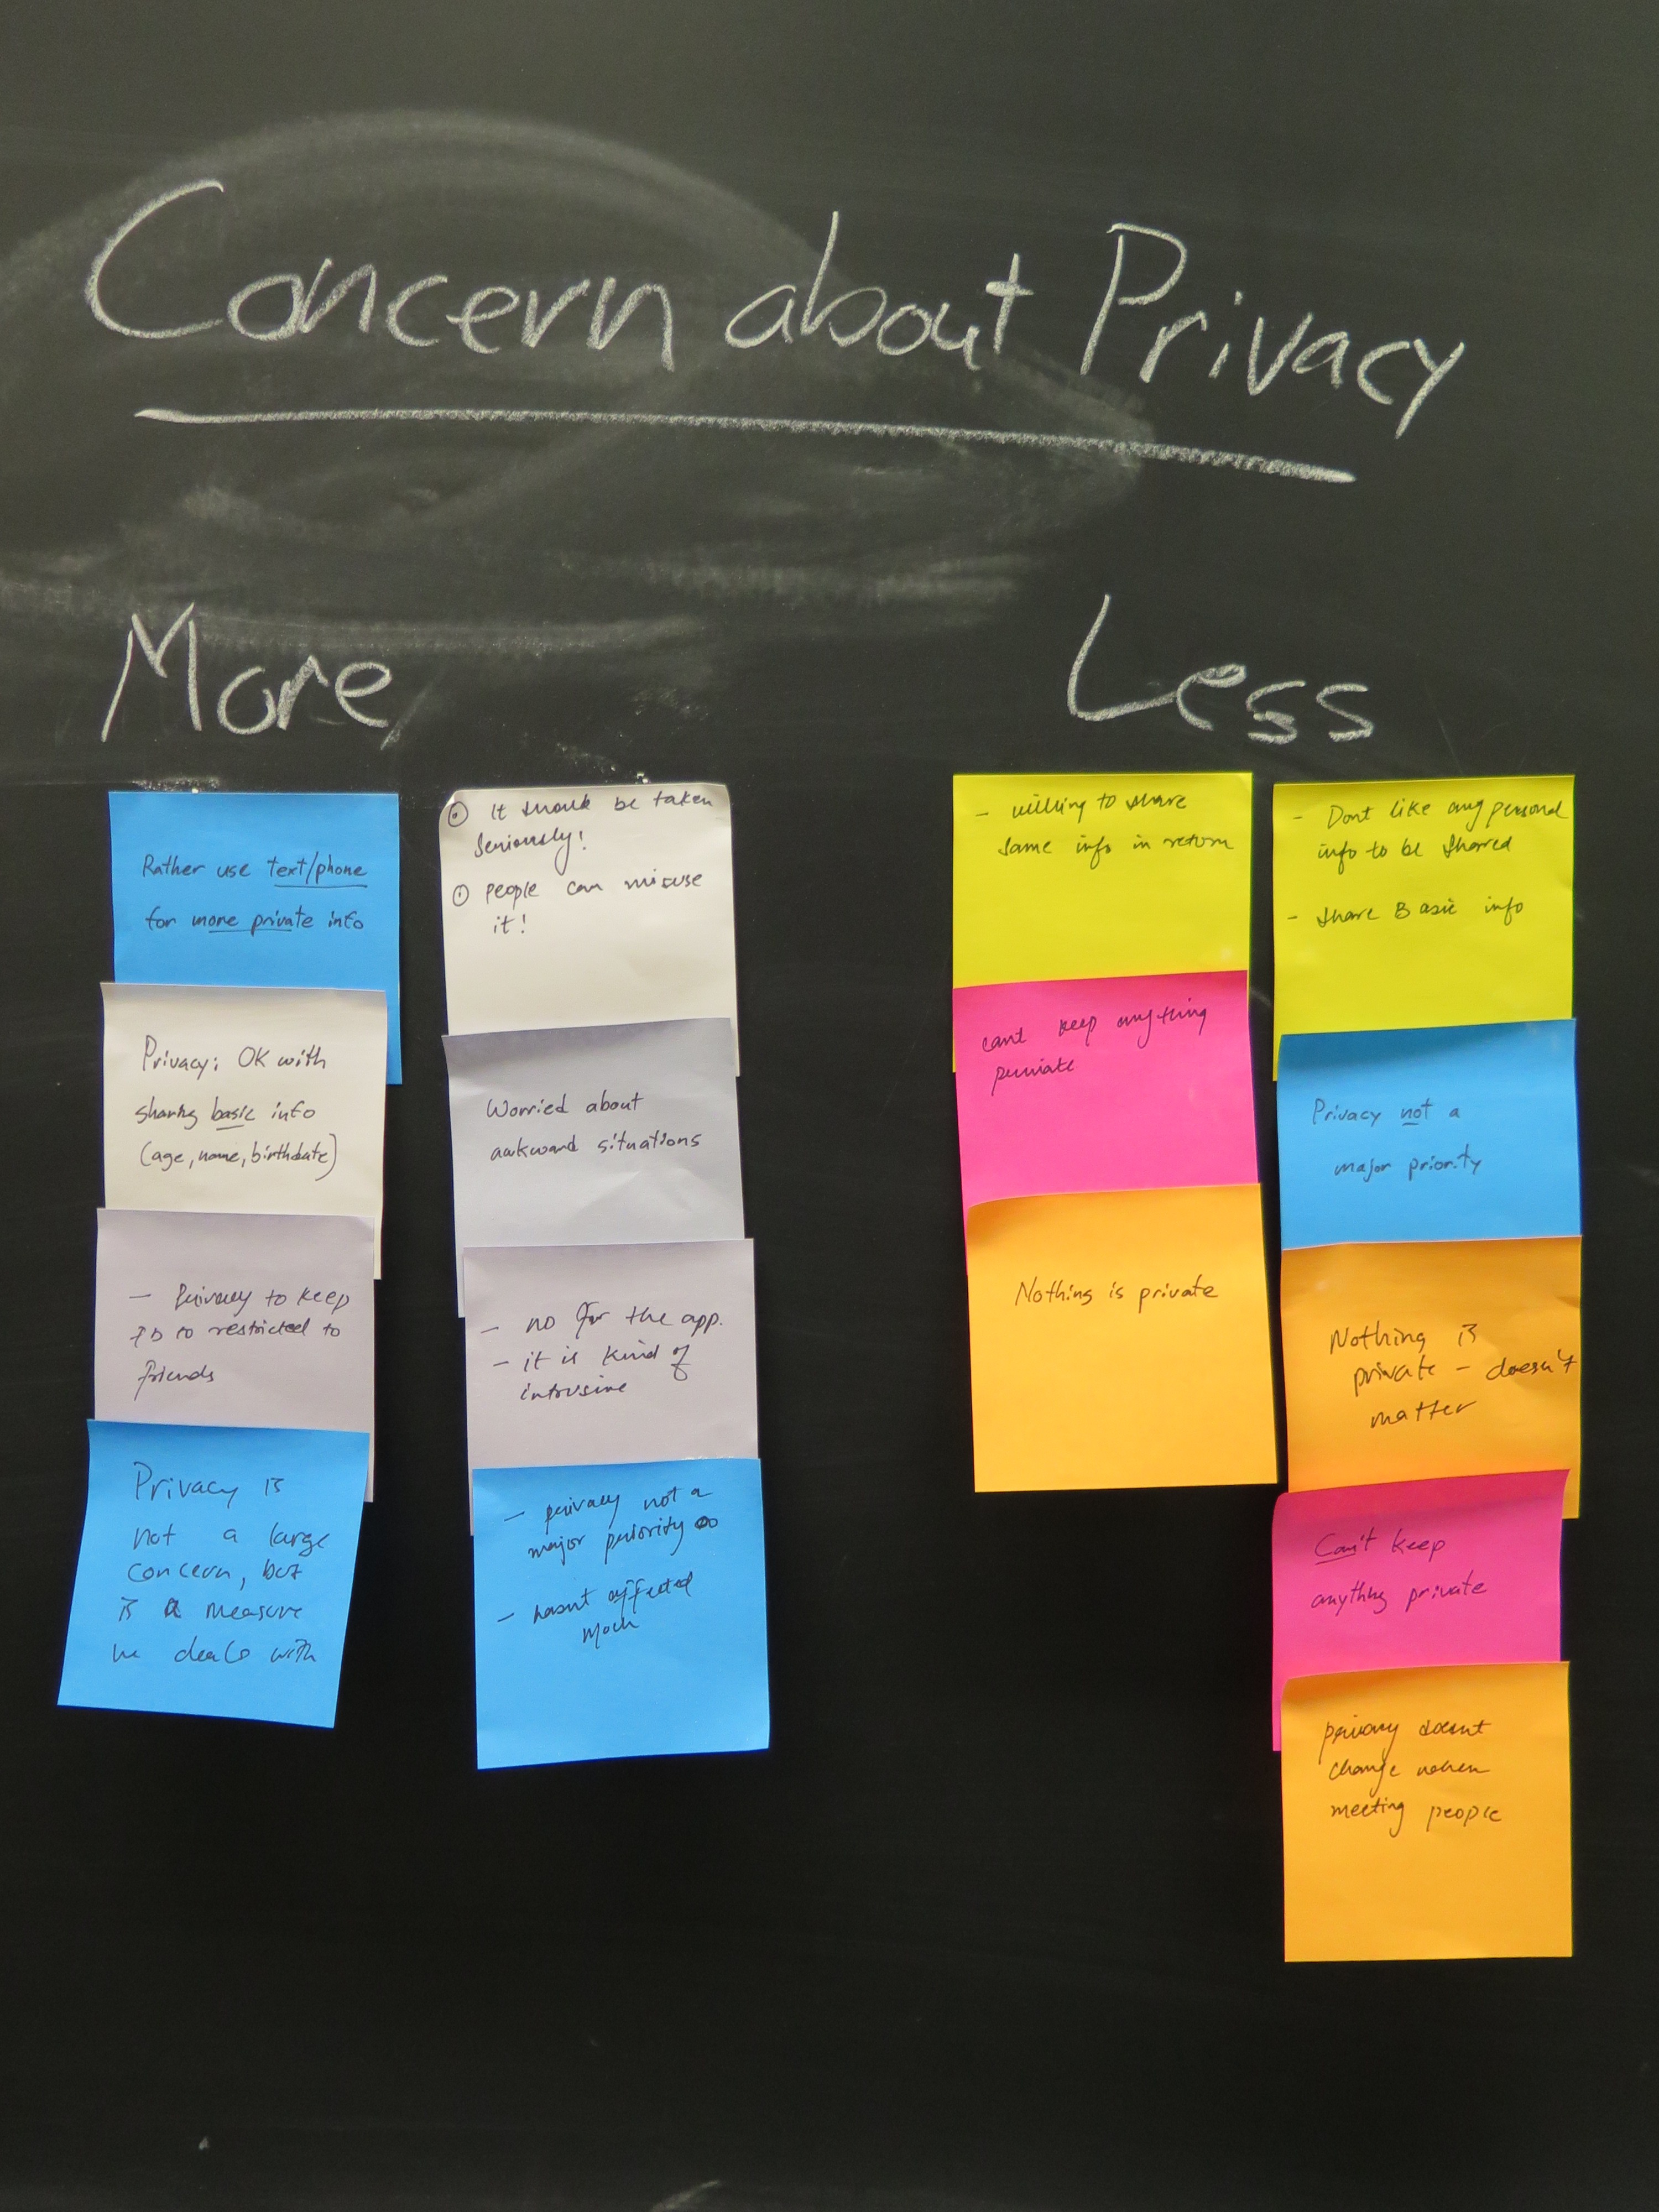 Concern about Privacy
More
Less
Rather use text/phone
for more private info
Privacy: OK with
sharing basic info
(age, name, birthdate)
- Privacy to keep
to restricted to
friends
Privacy is
not a large
concern, but
is a measure
we deal with
It should be taken
seriously!
People can misuse
it!
Worried about
awkward situations
- no for the app.
- it is kind of
intrusive
- privacy not a
major priority
- hasnt affected
much
- willing to share
same info in return
cant keep anything
private
Nothing is private
- Dont like any personal
info to be shared
- share Basic info
Privacy not a
major priority
Nothing is
private - doesn't
matter
Can't keep
anything private
privacy doesnt
change when
meeting people